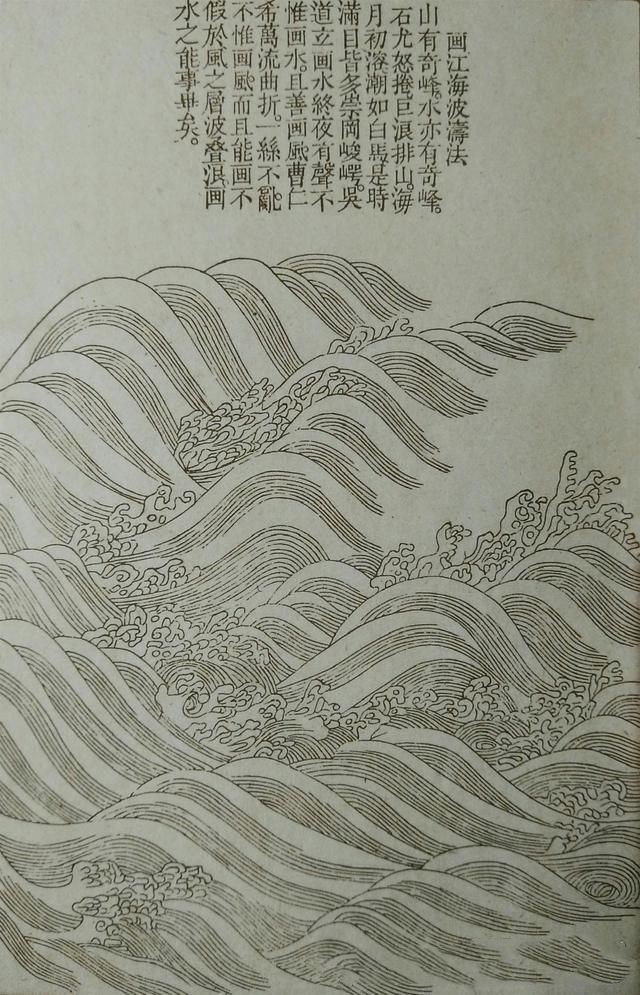 画江海波濤法
山有奇峰。水亦有奇峰。
石尤怒捲。巨浪排山。海
月初溶。潮如白馬。是時
滿目皆多崇岡峻嶂。吳
道立画水終夜有聲。不
惟画水。且善画風。曹仁
希萬流曲折。一絲不亂。
不惟画風。而且能画不
假於風之層波叠浪。画
水之能事畢矣。